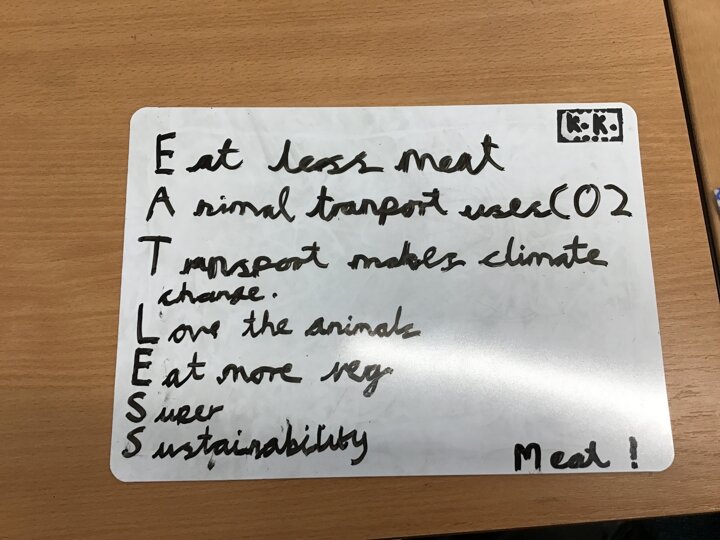 K.K.
Eat less meat
Animal tranport uses CO2
Transport makes climate
change.
Love the animals
Eat more veg
Super
Sustainability
Meat!